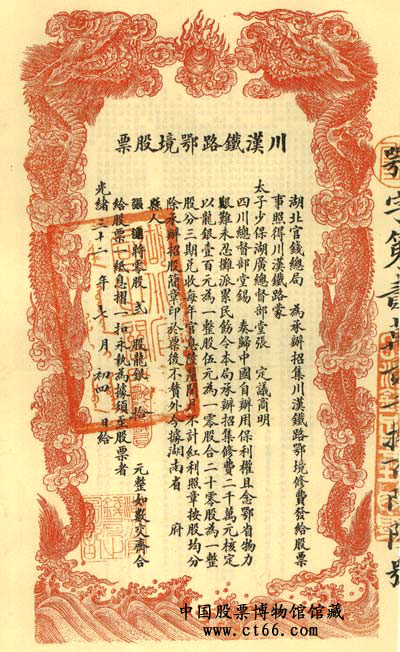 川漢鐵路鄂境股票
鄂字第壹萬號
湖北官錢總局 為承辦招集川漢鐵路鄂境修費發給股票
事照得川漢鐵路蒙
太子少保湖廣總督部堂張 定議商明
四川總督部堂錫 奏歸中國自辦用保利權且念鄂省物力
艱難未忍攤派累民飭令本局承辦招集修費二千萬元核定
以龍銀壹百元為一整股伍元為一零股合二十零股為一整
股分三期兌收每年官息不計紅利照章按股均分
除承辦招股簡章印於票後不贅外今據湖南省 府
縣人
張 將零股 弍 股龍銀 拾 元整如數交齊合
給股票一紙息摺一扣永執為據須至股票者
光緒三十二年七月初四日給
中国股票博物馆馆藏
www.ct66.com